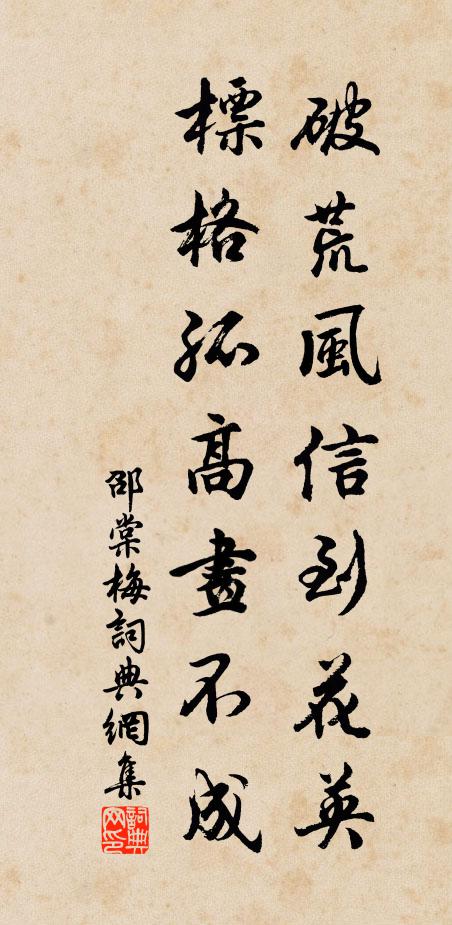 破荒風信到花英
標格孤高畫不成
邵棠梅詞典網集
詞典
网印